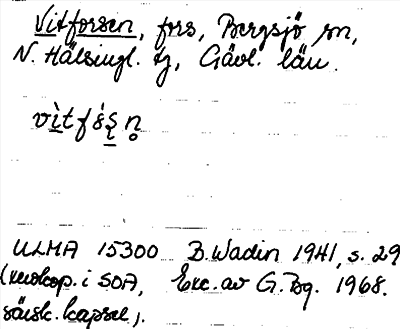 Vitforsen, fors, Bergsjö sn,
N. Hälsingl. tg, Gävl. län.
vìtfós̨n̥
ULMA 15300 B. Wadin 1941, s. 29
(mikrop. i SOA, Exc. av G. Bg. 1968.
särsk. kapsel).